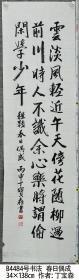 雲淡風輕近午天傍花隨柳過
前川時人不識余心樂將謂偷
閑學少年
程顥春日偶成丙申丁寶森書
B4484号书法 春日偶成
34×138cm 作者: 丁宝森